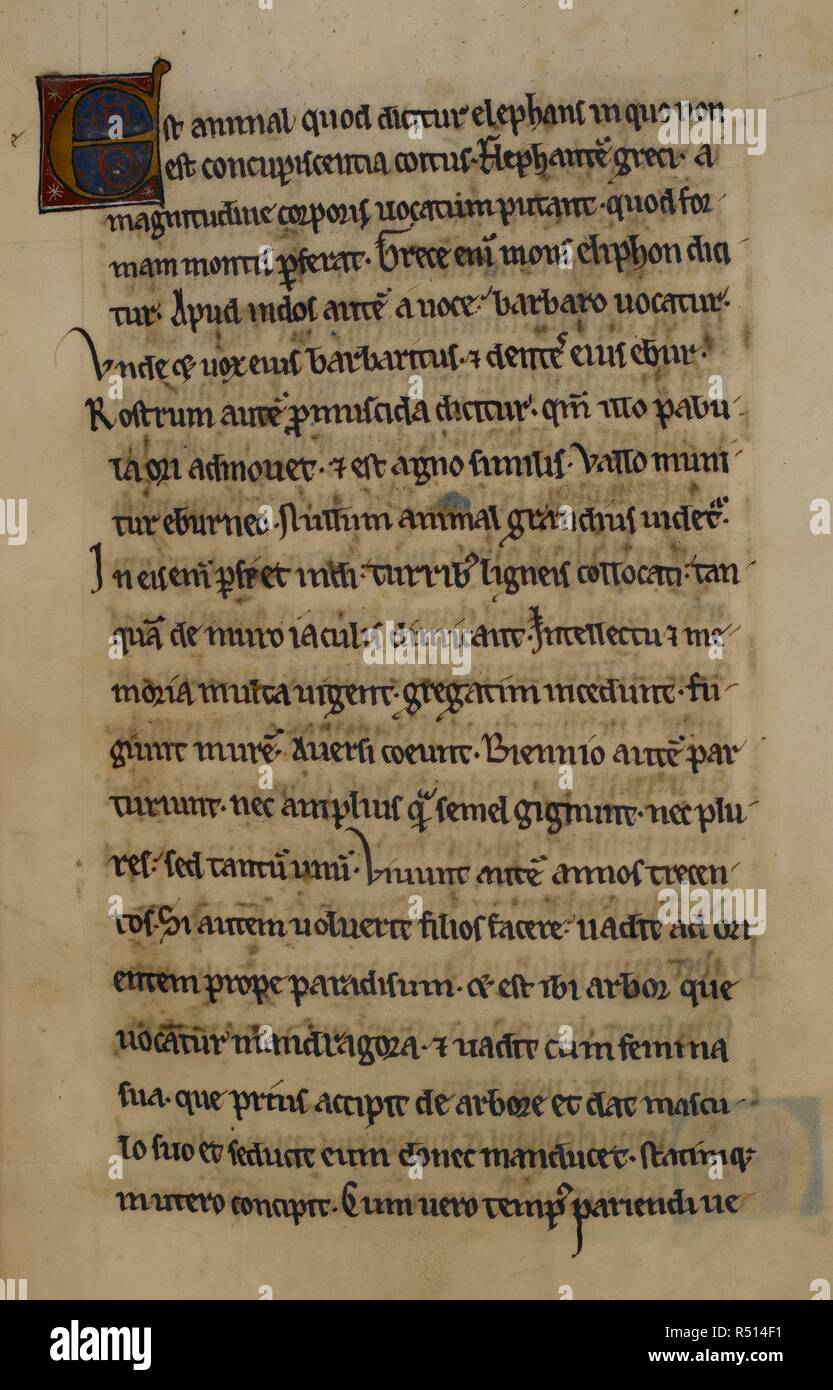 Est animal quod dicitur elephans in quo non
est concupiscentia coitus. Elephantē greci. a
magnitudine corporis uocatum putant. quod for
mam montis pferat. Grece eni mons eliphon dici
tur. Apud indos autē a uoce barbaro uocatur.
Vnde & uox eius barbaritus. ⁊ dentes eius ebur.
Rostrum autē pmuscida dicitur. qm̄ illo pabu
la ori admouet. ⁊ est agno similis. Vallo muni
tur eburneo. Nullum animal grandius uidet.
In eis eni pse et indi. turrib ligneis collocati. tan
quā de muro iaculis dimicant. Intellectu ⁊ me
moria multa uigent. gregatim incedunt. fu
giunt murē. Auersi coeunt. Biennio autē par
turiunt. nec amplius q̄ semel gignunt. nec plu
res. sed tantū unū. Viuunt autē annos trecen
tos. Si autem uoluerit filios facere. uadit ad ori
entem prope paradisum. & est ibi arbor que
uocatur mandragora. ⁊ uadit cum femina
sua. que prius accipit de arbore et dat mascu
lo suo et seducit eum donec manducet. statimq
in utero concipit. Cum uero temps pariendi ue
alamy
Image ID: R514F1
www.alamy.com